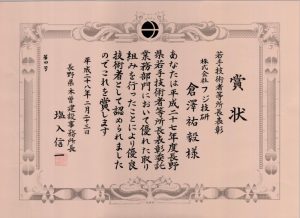 賞状
若手技術者等所長表彰
株式会社フジ技研
倉澤祐毅様
あなたは平成二十七年度長野
県若手技術者等所長表彰委託
業務部門において優れた取り
組みを行ったことにより優良
技術者として認められました
のでこれを賞します
平成二十八年二月二十三日
長野県木曽建設事務所長
塩入信一
第四号